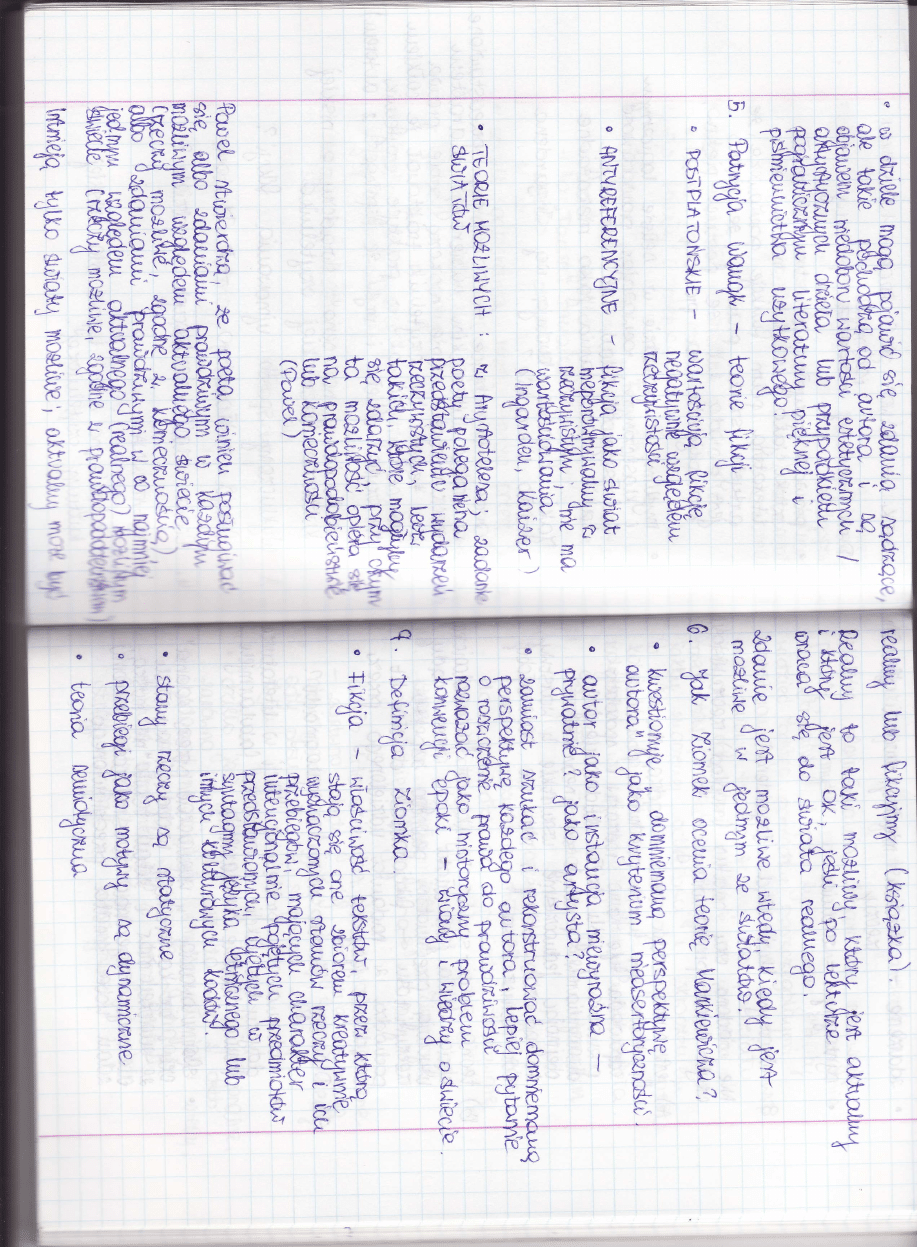 • w dziele mogą pojawić się zdania sądzące,
ale takie pochodzą od autora i są
objawem niedoboru wartości estetycznych /
artystycznych dzieła lub przypadkiem
pogranicznym literatury pięknej i
piśmiennictwa użytkowego!
5. Patrycja Waugh – teorie fikcji
• POSTPLATOŃSKIE – wartościują fikcję
negatywnie względem
rzeczywistości
• ANTYREFERENCYJNE – fikcja jako świat
nieporównywalny z
rzeczywistym; nie ma
wartościowania
(Ingarden, Kaiser)
• TEORIE MOŻLIWYCH : z Arystotelesa; zadanie
ŚWIATÓW poety polega na
przedstawieniu wydarzeń
rzeczywistych, lecz
takich, które mogłyby
się zdarzyć, przy czym
ta możliwość opiera się
na prawdopodobieństwie
lub konieczności
(Pavel)
Pavel stwierdza, że poeta winien posługiwać
się albo zdaniami prawdziwymi w każdym
możliwym względem aktualnego, świecie
(rzeczy możliwe, zgodne z koniecznością)
albo zdaniami prawdziwymi w co najmniej
jednym względem aktualnego (realnego) możliwym
świecie (rzeczy możliwe, zgodne z prawdopodobieństwem)
Istnieją tylko światy możliwe; aktualny może być
realny lub fikcyjny (książka).
Realny to taki możliwy, który jest aktualny
i który jest ok, jeśli po lekturze
wracasz się do świata realnego.
Zdanie jest możliwe wtedy kiedy jest
możliwe w jednym ze światów.
6. Jak Ziomek ocenia teorię Markiewicza?
• kwestionuje „domniemaną perspektywę
autora" jako kryterium nieasertoryczności.
• autor jako instancja niewyraźna –
prywatne? jako artysta?
• zamiast szukać i rekonstruować domniemaną
perspektywę każdego autora, lepiej pytanie
o roszczenie prawd do prawdziwości
rozważać jako historyczny problem
konwencji epoki – wiary i wiedzy o świecie.
7. Definicja Ziomka
• Fikcja – właściwość tekstów, przez którą
stają się one zbiorem kreatywnie
wyznaczonych stanów rzeczy i ich
przebiegów, mających charakter
intencjonalnie pojętych przedmiotów
przedstawionych, ujętych w
syntagmy języka etnicznego lub
innych kulturowych kodów.
• stany rzeczy są statyczne
• przebiegi jako motywy są dynamiczne
• teoria